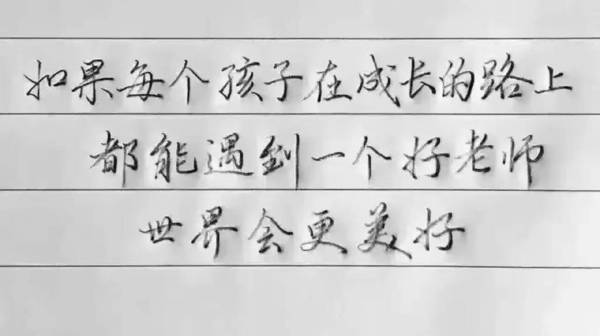 如果每个孩子在成长的路上
都能遇到一个好老师
世界会更美好